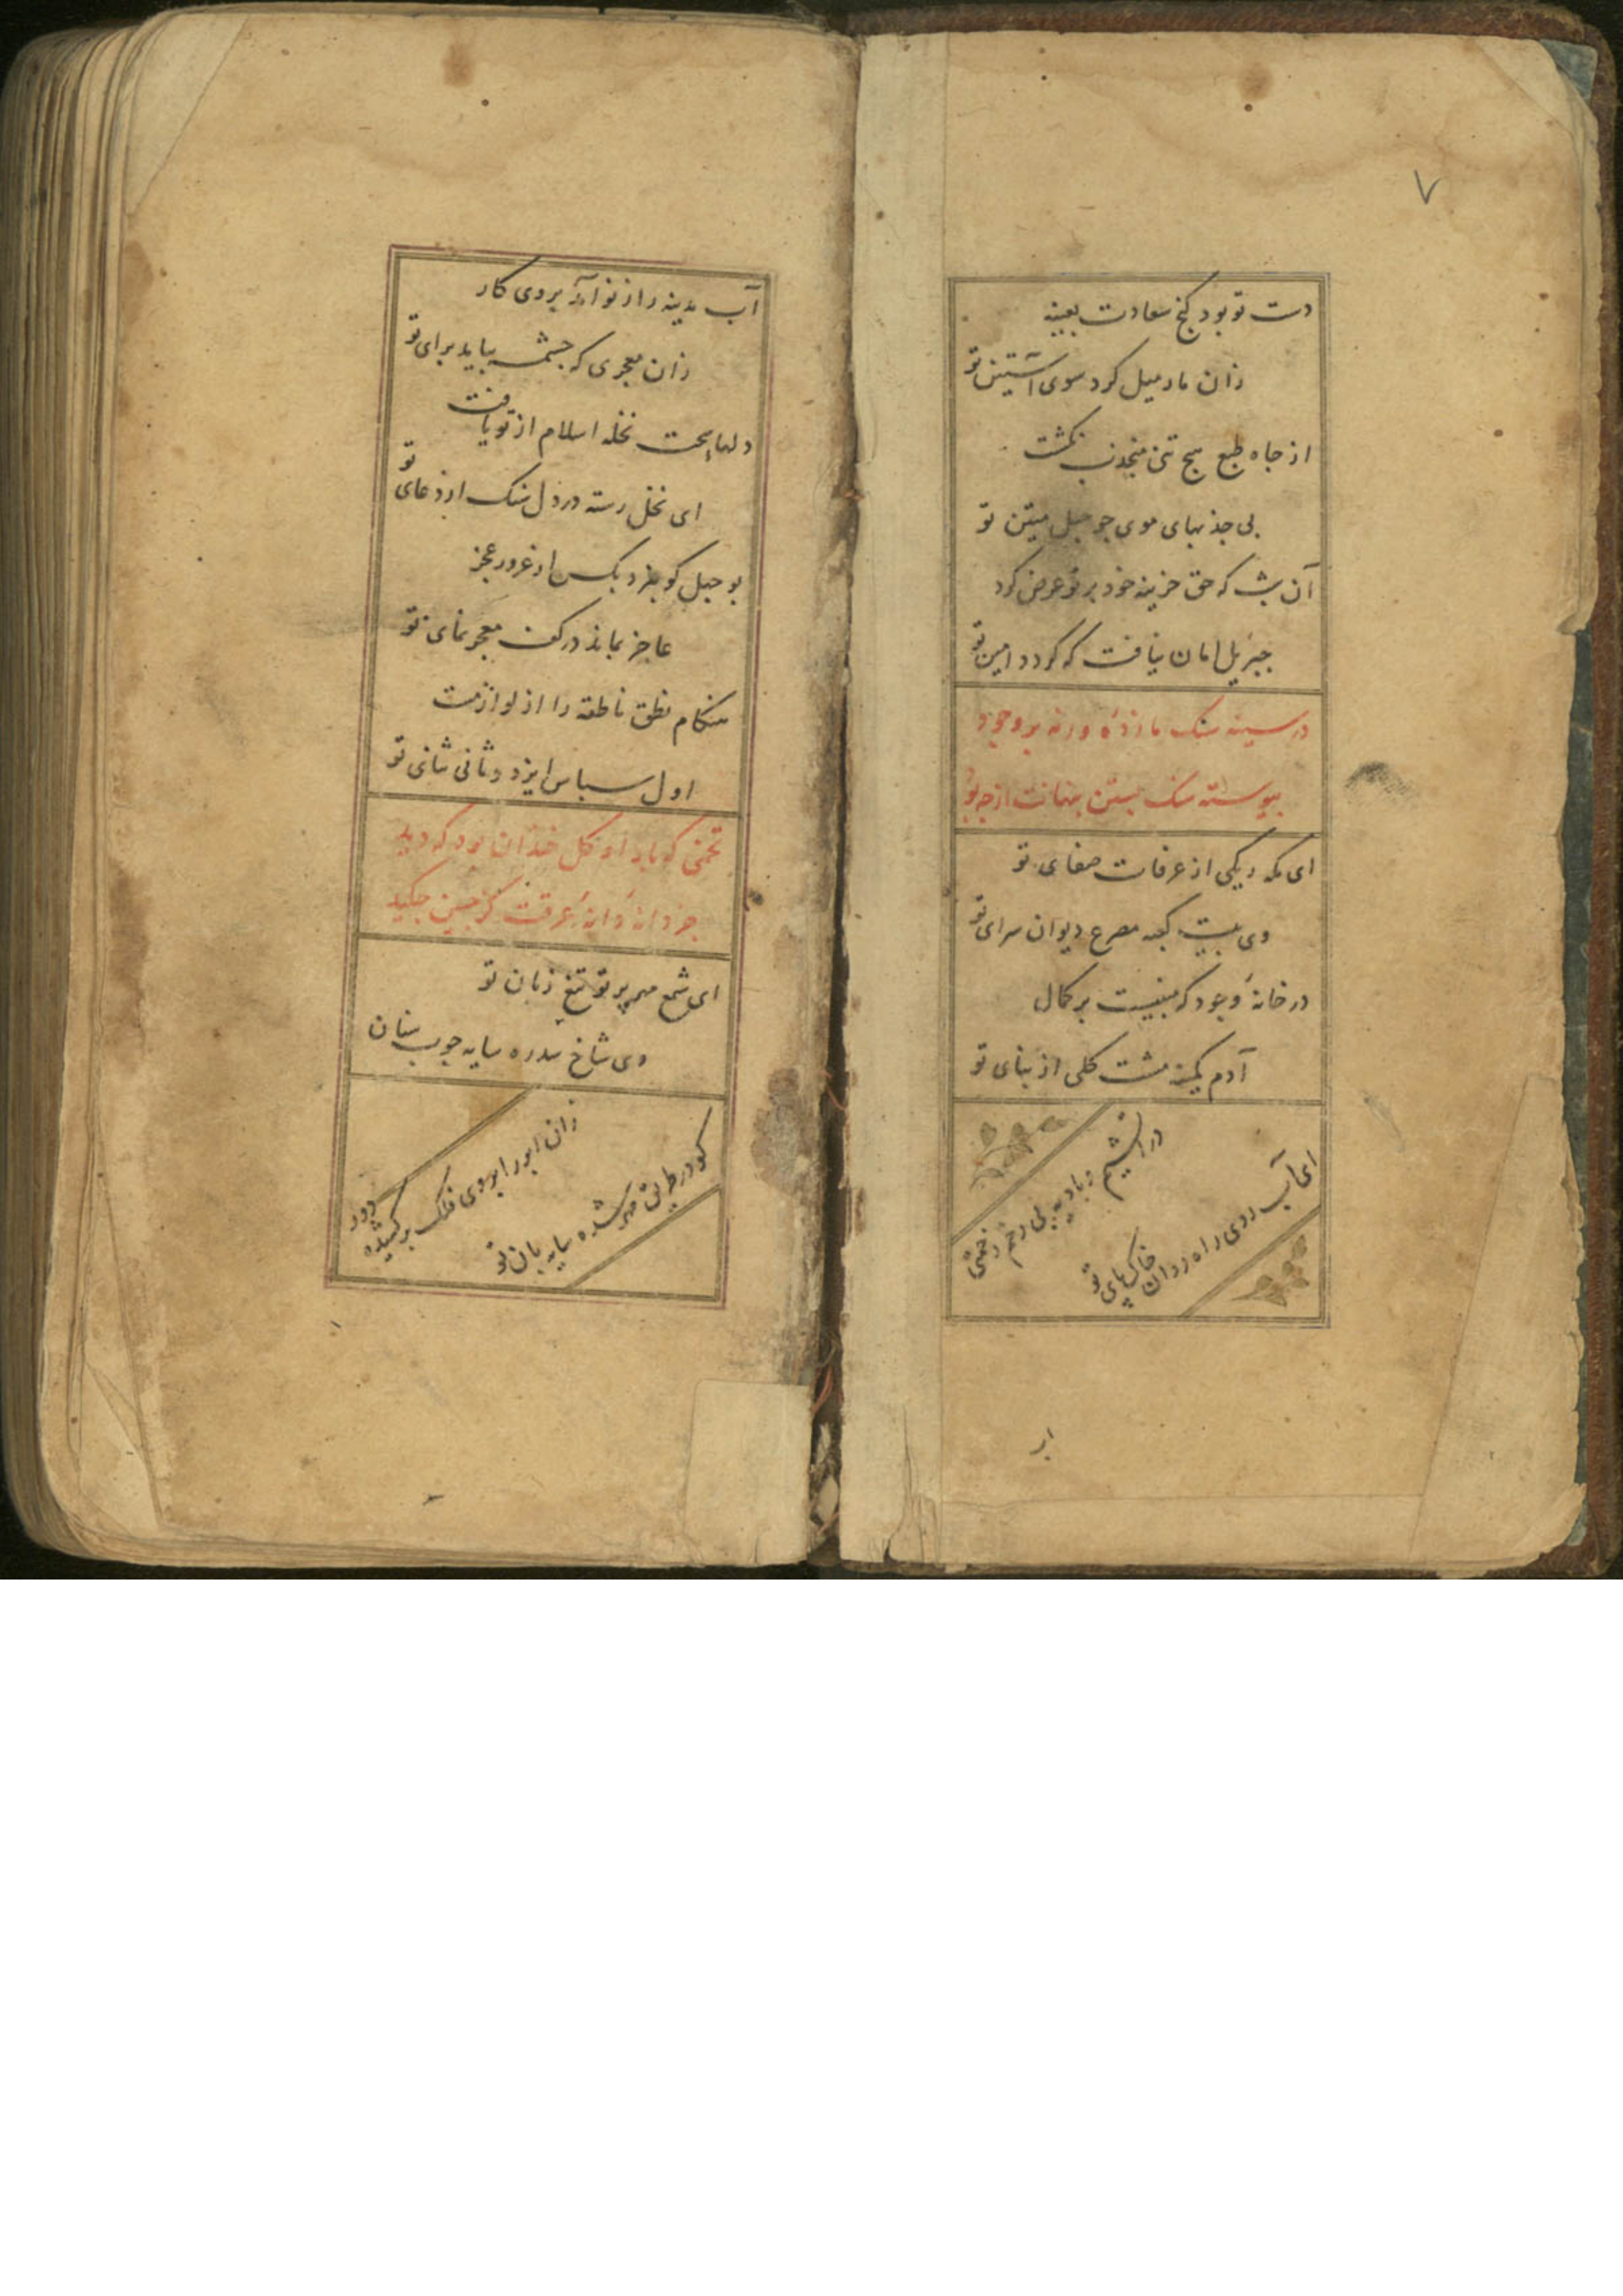 ۷
دست تو بود کنج سعادت بعینه
زان مار میل کرد سوی آستین تو
از جاه طبع هیچ تنی منجذب نکشت
بی جذبهای موی چو حبل متین تو
آن شب که حق خزینه خود بر تو عرض کرد
جبریل امان نیافت که کردد امین تو
در سینه سنک مازده ورنه بر وجود
پیوسته سنک بستن پنهانت از چه بود
ای مکه ریکی از عرفات صفای تو
وی بیت کعبه مصرع دیوان سرای تو
در خانهٔ وجود که مبنیست بر کمال
آدم کمینه مشت کلی از بنای تو
در آتشیم و بادیه بی زخم زحمتی
ای آب روی راه روان خاک پای تو
اب
آب مدینه را ز تو آمد بروی کار
زان معجری که چشمه بیاید برای تو
دلها سخت نخله اسلام از تو یافت
ای نخل رسته در دل سنک از دعای تو
بوجهل کو بزد یکس از غرور عجز
عاجز بماند در کف معجز نمای تو
هنکام نطق ناطقه را از لوازمت
اول سپاس ایزد و ثانی ثنای تو
تخمی که بار او کل خندان بود که دید
جز دانهٔ دانهٔ عرقت کز جبین چکید
ای شمع مهر پرتو تیغ زبان تو
وی شاخ سدره سایه چوب سنان
زان ابر را بروی فلک برکشیده دور
کو در طریق مهر شده سایه بان تو